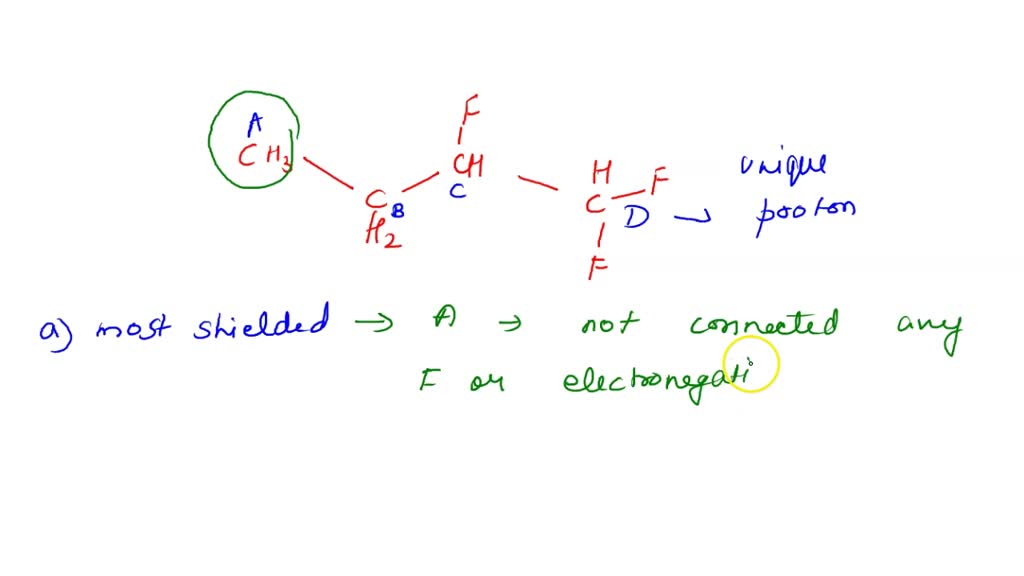 A
CH3
F
CH
C
C B
H2
H
C F
D →
F
unique
proton
a) most shielded → A → not connected any
F or electronegati